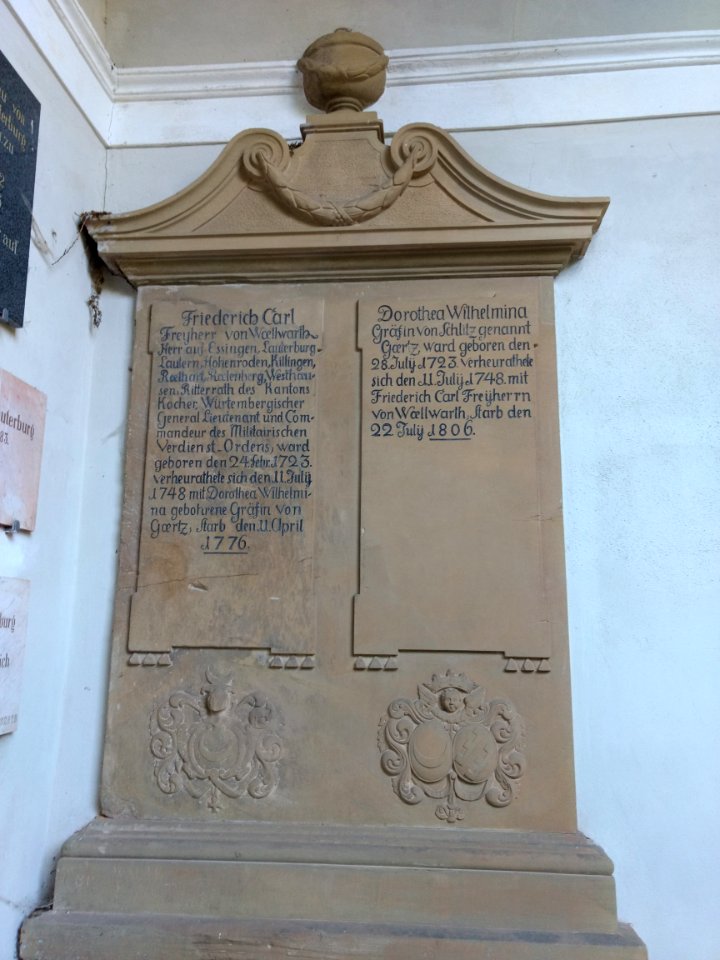 Friederich Carl
Freÿherr von Wœllwarth
Herr auf Essingen, Lauterburg-
Lautern, Hohenroden, Killingen,
Westhau-
sen, Ritterrath des Kantons
Kocher, Würtembergischer
General Lieutenant und Com-
mandeur des Militairischen
Verdienst-Ordens, ward
geboren den 24. Febr. 1723.
verheurathete sich den 11. Julÿ
1748 mit Dorothea Wilhelmi-
na gebohrene Gräfin von
Gœrtz, starb den 11. April
1776.
Dorothea Wilhelmina
Gräfin von Schlitz genannt
Gœrtz, ward geboren den-
28. Julÿ 1723. verheurathete
sich den 11. Julÿ 1748. mit
Friederich Carl Freÿherrn
von Wœllwarth, starb den
22 Julÿ 1806.
lauterburg